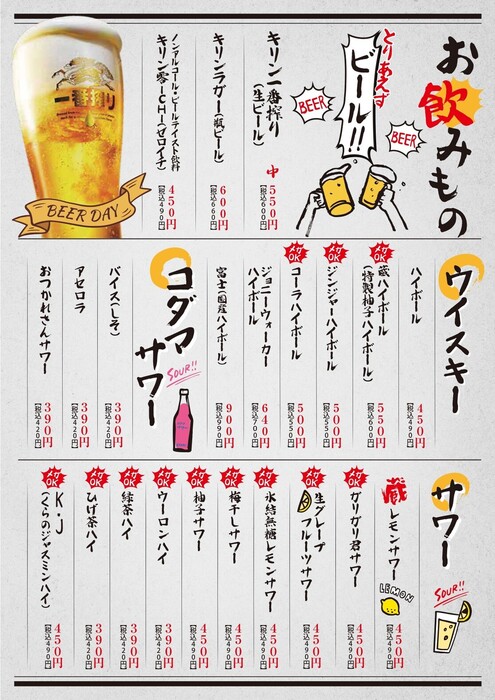 お飲みもの
とりあえず
ビール!!
BEER
BEER
キリン一番搾り
(生ビール)
中
550円
【税込600円】
キリンラガー(瓶ビール)
600円
【税込660円】
ノンアルコール・ビールテイスト飲料
キリン零ICHI(ゼロイチ)
450円
【税込490円】
一番搾り
BEER DAY
ウイスキー
ハイボール
450円
【税込490円】
メガOK
蔵ハイボール
(特製柚子ハイボール)
550円
【税込600円】
メガOK
ジンジャーハイボール
500円
【税込550円】
メガOK
コーラハイボール
500円
【税込550円】
ジョニーウォーカー
ハイボール
640円
【税込700円】
富士(国産ハイボール)
900円
【税込990円】
コダマ
サワー
SOUR!!
バイス(しそ)
390円
【税込420円】
アセロラ
390円
【税込420円】
おつかれさんサワー
390円
【税込420円】
サワー
SOUR!!
メガOK
蔵レモンサワー
LEMON
450円
【税込490円】
メガOK
ガリガリ君サワー
450円
【税込490円】
メガOK
生グレープ
フルーツサワー
450円
【税込490円】
メガOK
氷結無糖レモンサワー
450円
【税込490円】
メガOK
梅干しサワー
450円
【税込490円】
メガOK
柚子サワー
450円
【税込490円】
メガOK
ウーロンハイ
390円
【税込420円】
メガOK
緑茶ハイ
390円
【税込420円】
メガOK
ひげ茶ハイ
390円
【税込420円】
メガOK
K・J
(くらのジャスミンハイ)
450円
【税込490円】